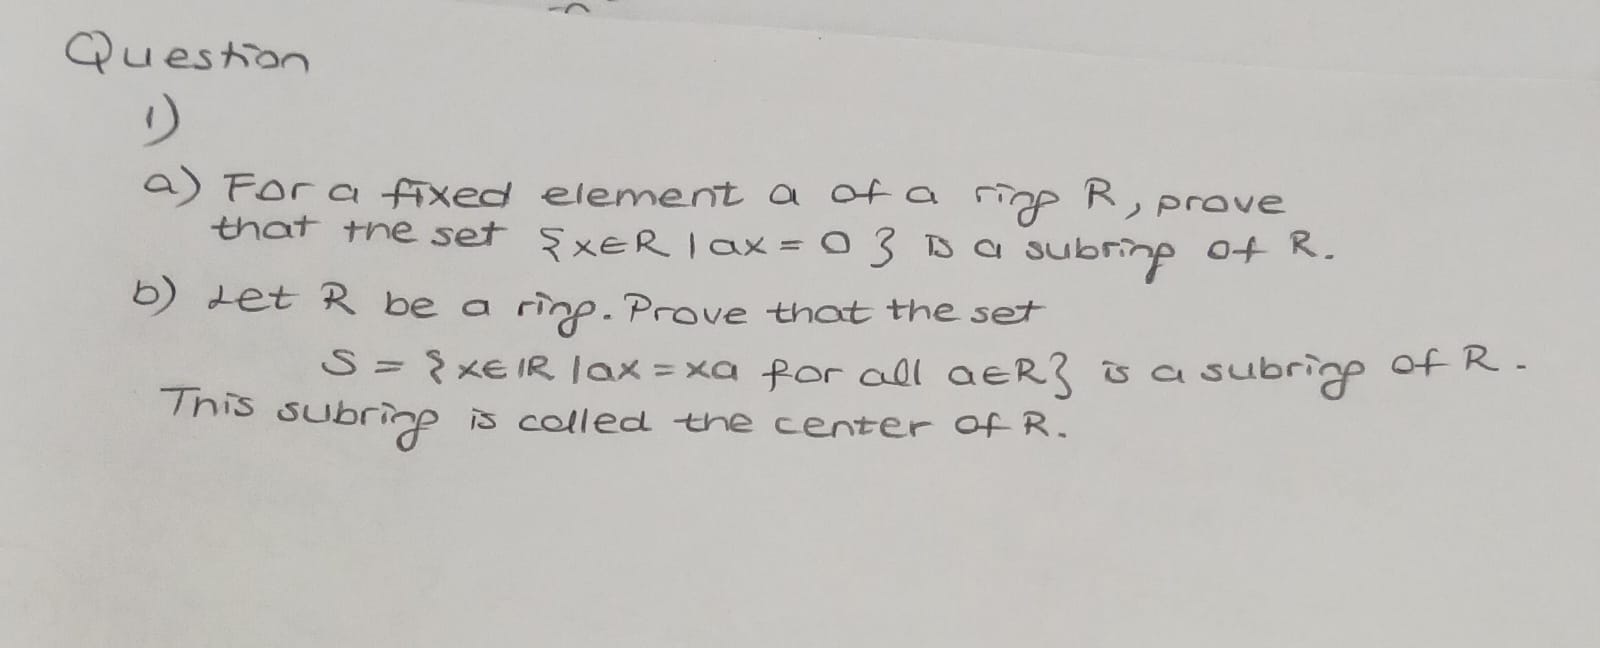 Question
1)
a) For a fixed element a of a ring R, prove
that the set {x∈R | ax = 0} is a subring of R.
b) Let R be a ring. Prove that the set
S = {x∈ℝ | ax = xa for all a∈R} is a subring of R.
This subring is called the center of R.